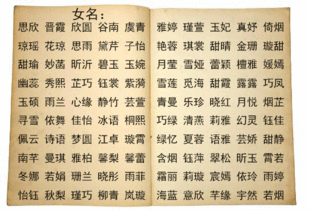 女名：
思欣 晋霞 欣圆 谷南 虞青
琼瑶 花琼 思雨 黛芹 子怡
甜瑜 妙菡 昕沂 碧玉 玉婉
幽蕊 秀熙 芷巧 钰棠 紫漪
玉硕 雨兰 心缘 静竹 芸萱
寻雪 依舞 佳怡 冰语 桐熙
佩云 诗语 梦圆 江卓 璇霄
南芊 曼琪 雅柏 馨梨 馨蕾
冬娜 若娟 珊兰 晓彤 雨菲
怡钰 秋梨 瑾巧 柳青 岚璇
雅婷 瑾萱 玉妃 真妤 倚烟
艳蓉 琪裳 甜晴 金珊 璇甜
月莹 雪娅 蕾颖 檀雅 媛嫣
雪莲 觅海 甜霞 露露 巧凤
青曼 乐珍 晓红 月悦 烟芷
巧绿 清燕 莉雅 幻灵 钰佳
绿忆 夏蓉 语雅 芸娇 甜静
含烟 钰萍 翠松 昕玉 霄若
霜丽 莉璇 宸嫣 依玲 雨婷
海蓝 意欣 芊缘 宇然 若烟